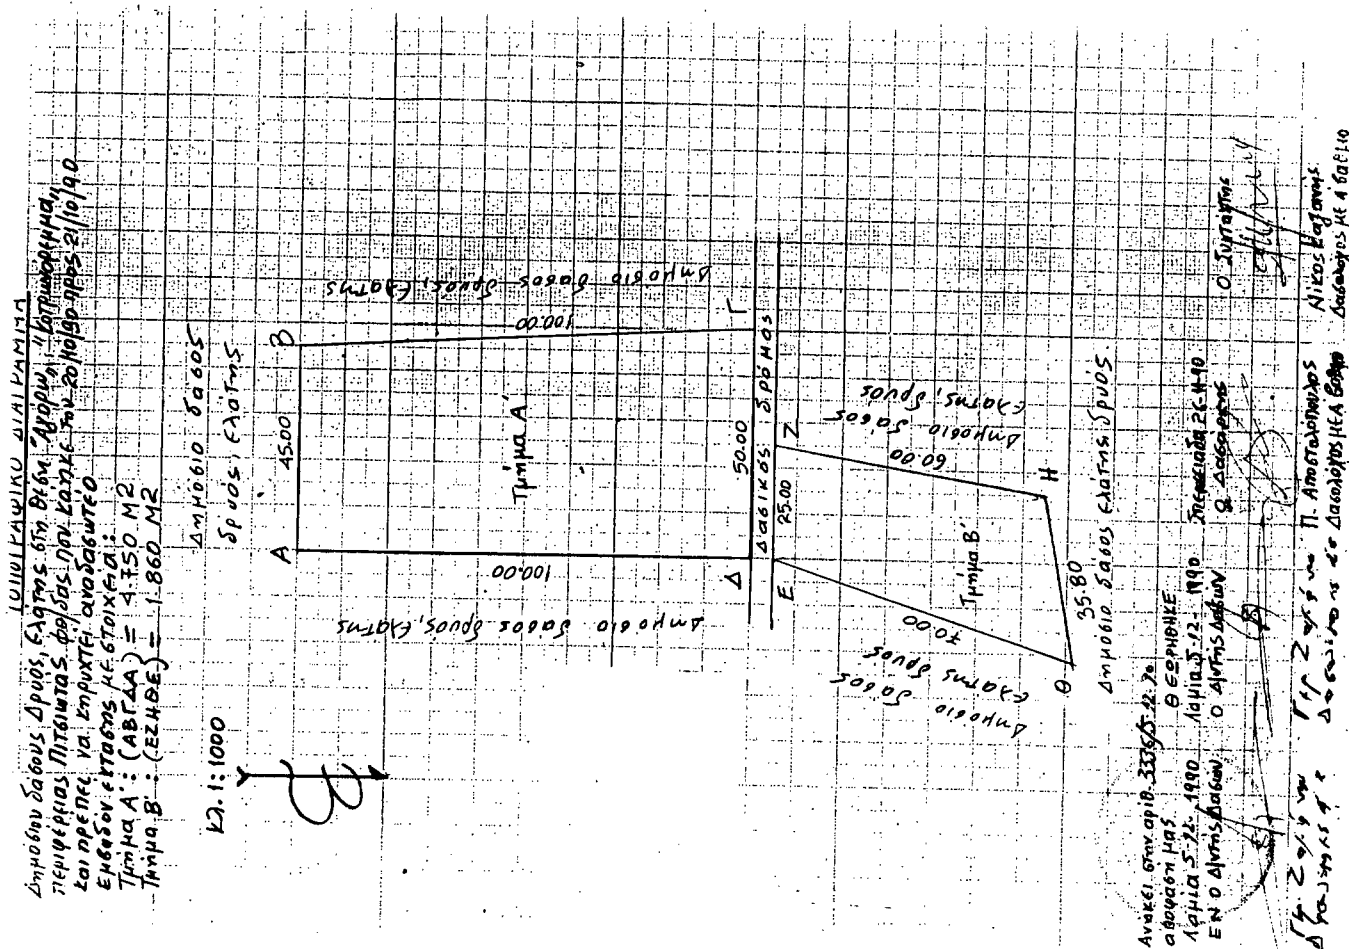 ΤΟΠΟΓΡΑΦΙΚΟ ΔΙΑΓΡΑΜΜΑ
Δημόσιου δάσους Δρυός, Ελάτης στη θέση "Αγόρω", "Κατριμόρρεμα"
περιφέρειας Πιτσιωτάς Φθ/δας που κάηκε την 20/10/90 προς 21/10/90
και πρέπει να κηρυχτεί αναδασωτέο
Εμβαδόν έκτασης με στοιχεία:
Τμήμα Α': (ΑΒΓΔΑ) = 4.750 Μ2
Τμήμα Β': (ΕΖΗΘΕ) = 1.860 Μ2
Κλ. 1:1000
Δημόσιο δάσος
δρυός, ελάτης
Α
45.00
Β
100.00
Δημόσιο δάσος δρυός, ελάτης
Τμήμα Α'
100.00
Δημόσιο δάσος δρυός, ελάτης
Δ
50.00
Γ
Δασικός δρόμος
Ε
25.00
Ζ
Δημόσιο δάσος
ελάτης δρυός
70.00
Τμήμα Β'
60.00
Δημόσιο δάσος
ελάτης, δρυός
Θ
35.80
Η
Δημόσιο δάσος ελάτης, δρυός
Ανήκει στην αριθ. 3336/5-12-90
απόφασή μας
Λαμία 5-12-1990
Ο Δ/ντης Δασών
ΘΕΩΡΗΘΗΚΕ
Λαμία 5-12-1990
Ο Δ/ντης Δασών
Σπερχειάδα 26-11-90
Ο Δασάρχης
Ο Συντάκτης
Π. Αποστολόπουλος
Δασολόγος με Α βαθμό
Νίκος Καζάνης
Δασολόγος με Δ βαθμό